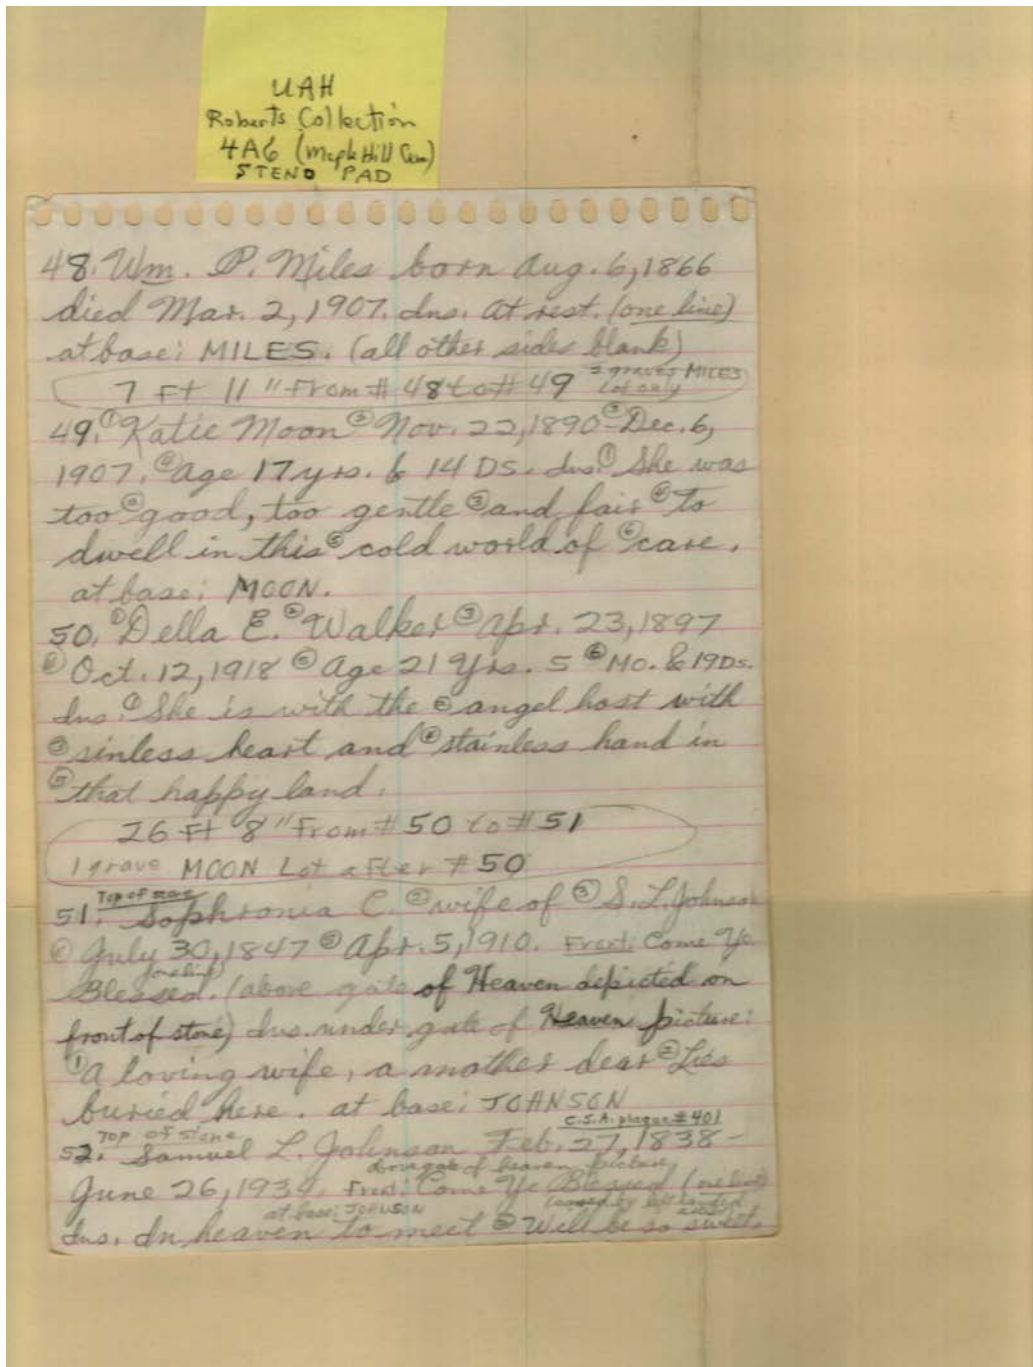 UAH
Roberts Collection
4A6 (Maple Hill Cem)
STENO PAD
48. Wm. P. Miles born Aug. 6, 1866
died Mar. 2, 1907. Ins. At rest. (one line)
at base: MILES. (all other sides blank)
7 Ft 11" From # 48 to # 49 2 graves MILES
Lot only
49. ① Katie Moon ② Nov. 22, 1890 - ③ Dec. 6,
1907. ④ Age 17 yrs. & 14 DS. Ins. ① She was
too ② good, too gentle ③ and fair ④ To
dwell in this ⑤ cold world of ⑥ care.
at base: MOON.
50. ① Della E. ② Walker ③ Apr. 23, 1897
④ Oct. 12, 1918 ⑤ Age 21 Yrs. 5 ⑥ Mo. & 19 Ds.
Ins. ① She is with the ② angel host with
③ sinless heart and ④ stainless hand in
⑤ that happy land.
26 Ft 8" From # 50 to # 51
1 grave MOON Lot after # 50
Top of stone
51. Sophronia C. ② wife of ③ S. L. Johnson
④ July 30, 1847 ⑤ Apr. 5, 1910. Front: Come Ye
(one line)
Blessed. (above gate of Heaven depicted on
front of stone) Ins. under gate of Heaven picture:
① A loving wife, a mother dear ② Lies
buried here. at base: JOHNSON
C.S.A. plaque # 401
Top of stone
52. Samuel L. Johnson Feb. 27, 1838 -
gate of heaven picture
June 26, 1934. Front: Come Ye Blessed (one line)
at base: JOHNSON by left handed
Ins. In heaven to meet ② Will be so sweet.